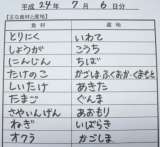 平成24年7月6日分
【主な食材と産地】
食材 産地
とりにく いわて
しょうが こうち
にんじん ちば
たけのこ かごしま ふくおか・くまもと
しいたけ あきた
たまご ぐんま
さやいんげん あおもり
ねぎ いばらき
オクラ かごしま